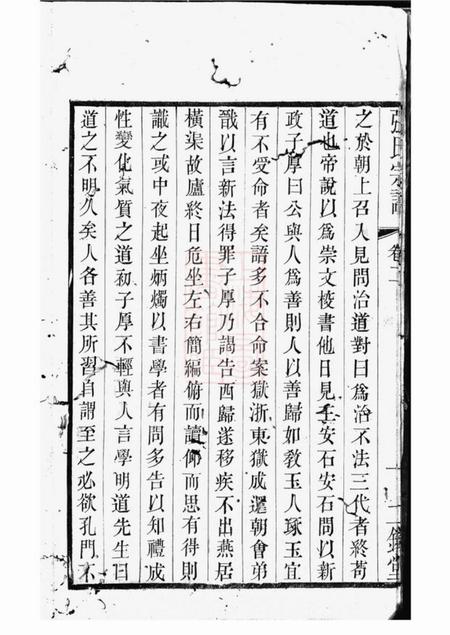 張氏宗譜 卷二
之於朝上召入見問治道對曰爲治不法三代者終苟
道也帝說以爲崇文校書他日見王安石安石問以新
政子厚曰公與人爲善則人以善歸如敎玉人琢玉宜
有不受命者矣語多不合命案獄浙東獄成還朝會弟
戩以言新法得罪子厚乃謁告西歸遂移疾不出燕居
橫渠故廬終日危坐左右簡編俯而讀仰而思有得則
識之或中夜起坐炳燭以書學者有問多告以知禮成
性變化氣質之道初子厚不輕與人言學明道先生曰
道之不明久矣人各善其所習自謂至之必欲孔門不